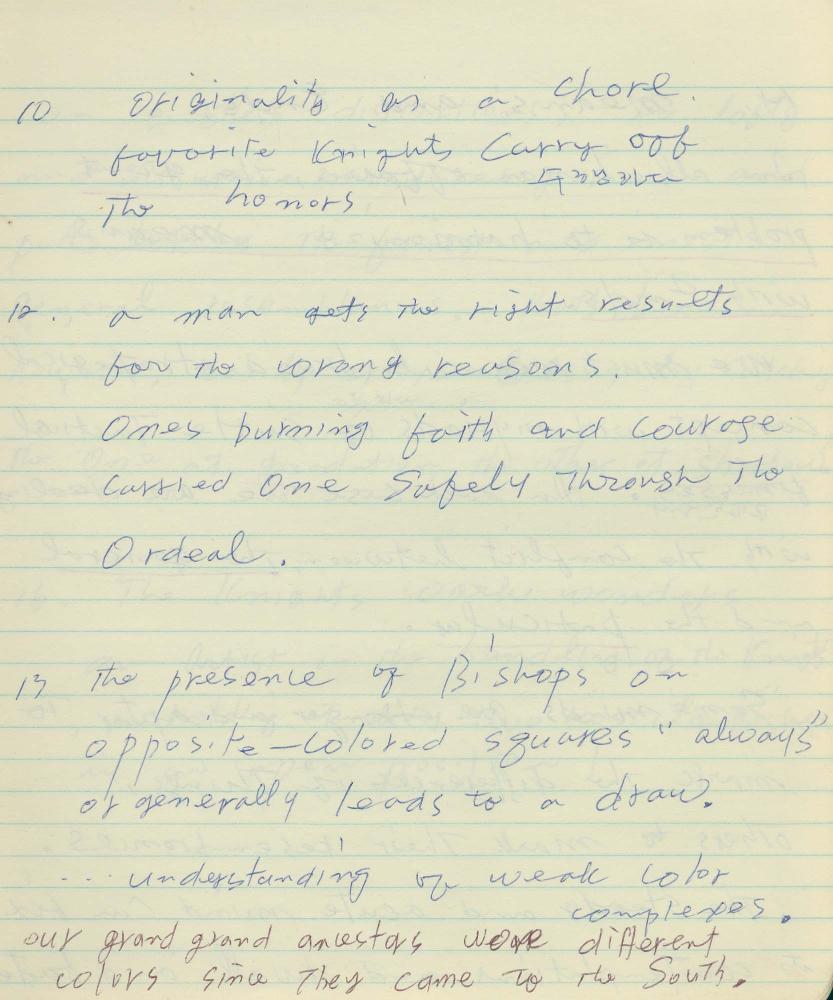 10 originality as a chore.
favorite Knights Carry oof
The honors
12. a man gets the right results
for the wrong reasons.
Ones burning faith and courage
carried One Safely Through The
Ordeal.
13 The presence of Bishops on
opposite-colored squares "always"
or generally leads to a draw.
... understanding of weak color
complexes.
our grand grand ancestors wore different
colors since They came to the South.